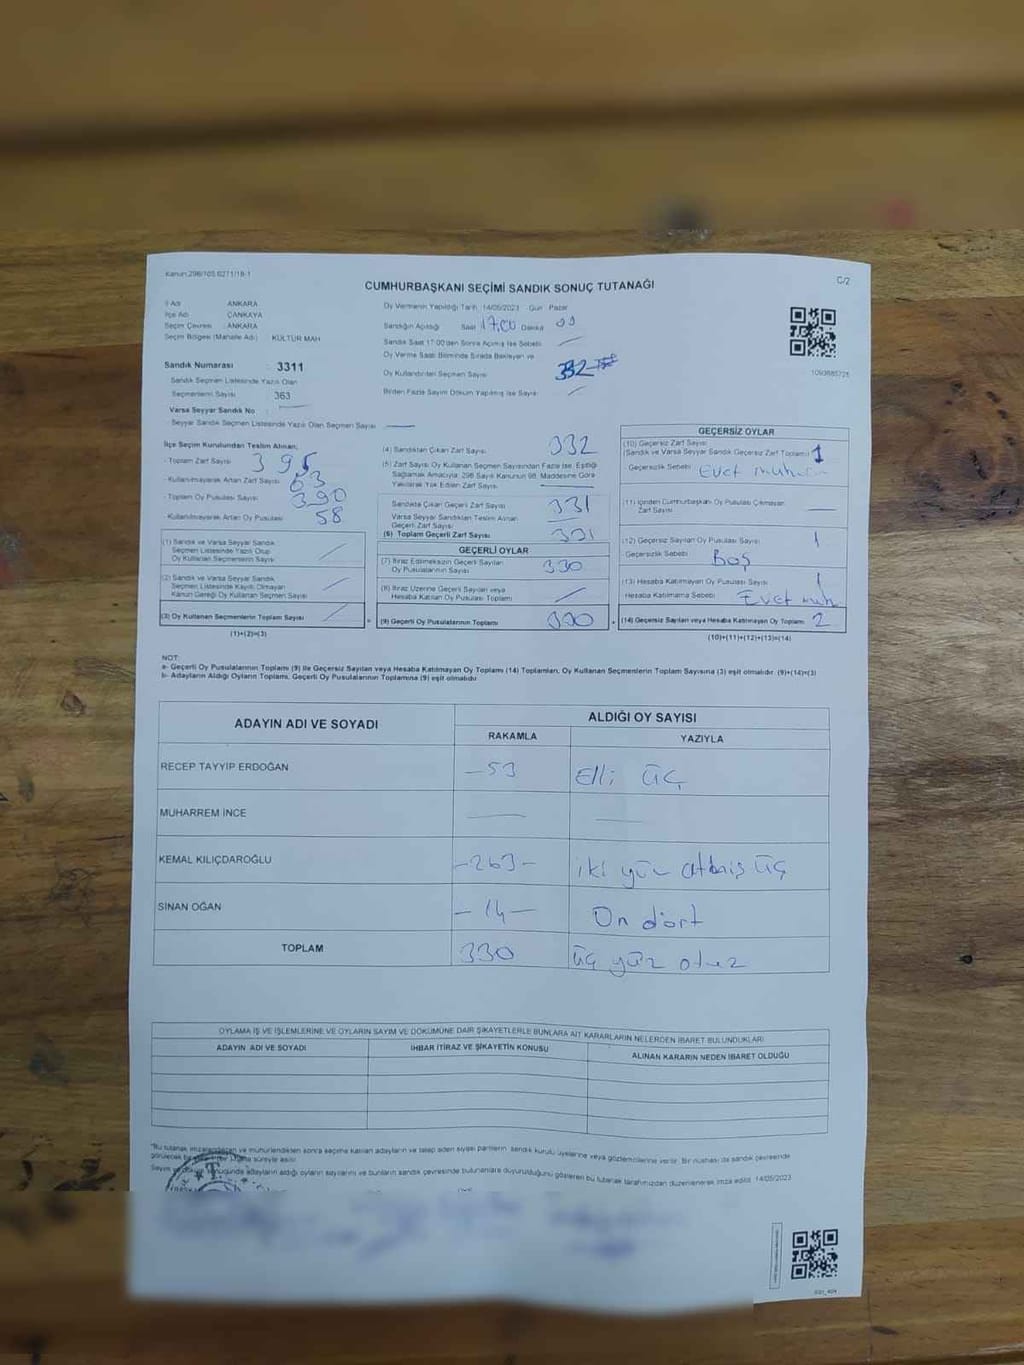 Kanun 298/105 6271/18-1
C/2
CUMHURBAŞKANI SEÇİMİ SANDIK SONUÇ TUTANAĞI
İl Adı ANKARA
İlçe Adı ÇANKAYA
Seçim Çevresi ANKARA
Seçim Bölgesi (Mahalle Adı) KÜLTÜR MAH
Sandık Numarası : 3311
Sandık Seçmen Listesinde Yazılı Olan
Seçmenlerin Sayısı 363
Varsa Seyyar Sandık No :
Seyyar Sandık Seçmen Listesinde Yazılı Olan Seçmen Sayısı
Oy Vermenin Yapıldığı Tarih 14/05/2023 Gün Pazar
Sandığın Açıldığı Saat 17:00 Dakika 00
Sandık Saat 17:00'den Sonra Açılmış İse Sebebi
Oy Verme Saati Bitiminde Sırada Bekleyen ve
Oy Kullandırılan Seçmen Sayısı 332
Birden Fazla Sayım Döküm Yapılmış İse Sayısı
1093885725
İlçe Seçim Kurulundan Teslim Alınan;
- Toplam Zarf Sayısı 395
- Kullanılmayarak Artan Zarf Sayısı 63
- Toplam Oy Pusulası Sayısı 390
- Kullanılmayarak Artan Oy Pusulası 58
(1) Sandık ve Varsa Seyyar Sandık
Seçmen Listesinde Yazılı Olup
Oy Kullanan Seçmenlerin Sayısı
(2) Sandık ve Varsa Seyyar Sandık
Seçmen Listesinde Kayıtlı Olmayan
Kanun Gereği Oy Kullanan Seçmenlerin Sayısı
(3) Oy Kullanan Seçmenlerin Toplam Sayısı
(1)+(2)=(3)
(4) Sandıktan Çıkan Zarf Sayısı 332
(5) Zarf Sayısı Oy Kullanan Seçmen Sayısından Fazla İse, Eşitliği
Sağlamak Amacıyla; 298 Sayılı Kanunun 98. Maddesine Göre
Yakılarak Yok Edilen Zarf Sayısı
Sandıkta Çıkan Geçerli Zarf Sayısı 331
Varsa Seyyar Sandıktan Teslim Alınan
Geçerli Zarf Sayısı
(6) Toplam Geçerli Zarf Sayısı 331
GEÇERLİ OYLAR
(7) İtiraz Edilmeksizin Geçerli Sayılan
Oy Pusulalarının Sayısı 330
(8) İtiraz Üzerine Geçerli Sayılan veya
Hesaba Katılan Oy Pusulaları Toplamı
(9) Geçerli Oy Pusulalarının Toplamı 330
GEÇERSİZ OYLAR
(10) Geçersiz Zarf Sayısı
(Sandık ve Varsa Seyyar Sandık Geçersiz Zarf Toplamı) 1
Geçersizlik Sebebi Evet
(11) İçinden Cumhurbaşkanı Oy Pusulası Çıkmayan
Zarf Sayısı
(12) Geçersiz Sayılan Oy Pusulası Sayısı 1
Geçersizlik Sebebi Boş
(13) Hesaba Katılmayan Oy Pusulası Sayısı 1
Hesaba Katılmama Sebebi Evet müh
(14) Geçersiz Sayılan veya Hesaba Katılmayan Oy Toplamı 2
(10)+(11)+(12)+(13)=(14)
NOT:
a- Geçerli Oy Pusulalarının Toplamı (9) ile Geçersiz Sayılan veya Hesaba Katılmayan Oy Toplamı (14) Toplamları, Oy Kullanan Seçmenlerin Toplam Sayısına (3) eşit olmalıdır. (9)+(14)=(3)
b- Adayların Aldığı Oyların Toplamı, Geçerli Oy Pusulalarının Toplamına (9) eşit olmalıdır
ADAYIN ADI VE SOYADI
ALDIĞI OY SAYISI
RAKAMLA YAZIYLA
RECEP TAYYİP ERDOĞAN -53 Elli üç
MUHARREM İNCE
KEMAL KILIÇDAROĞLU -263- iki yüz atmış üç
SİNAN OĞAN -14- On dört
TOPLAM 330 üç yüz otuz
OYLAMA İŞ VE İŞLEMLERİNE VE OYLARIN SAYIM VE DÖKÜMÜNE DAİR ŞİKAYETLERLE BUNLARA AİT KARARLARIN NELERDEN İBARET BULUNDUKLARI
ADAYIN ADI VE SOYADI İHBAR İTİRAZ VE ŞİKAYETİN KONUSU ALINAN KARARIN NEDEN İBARET OLDUĞU
"Bu tutanak imzalandıktan ve mühürlendikten sonra seçime katılan adayların ve talep eden siyasi partilerin sandık kurulu üyelerine veya gözlemcilerine verilir. Bir nüshası da sandık çevresinde
görülecek bir süreyle asılır.
Sayım ve sonucunda adayların aldığı oyların sayılarını ve bunların sandık çevresinde bulunanlara duyurulduğunu gösteren bu tutanak tarafımızdan düzenlenerek imza edildi. 14/05/2023